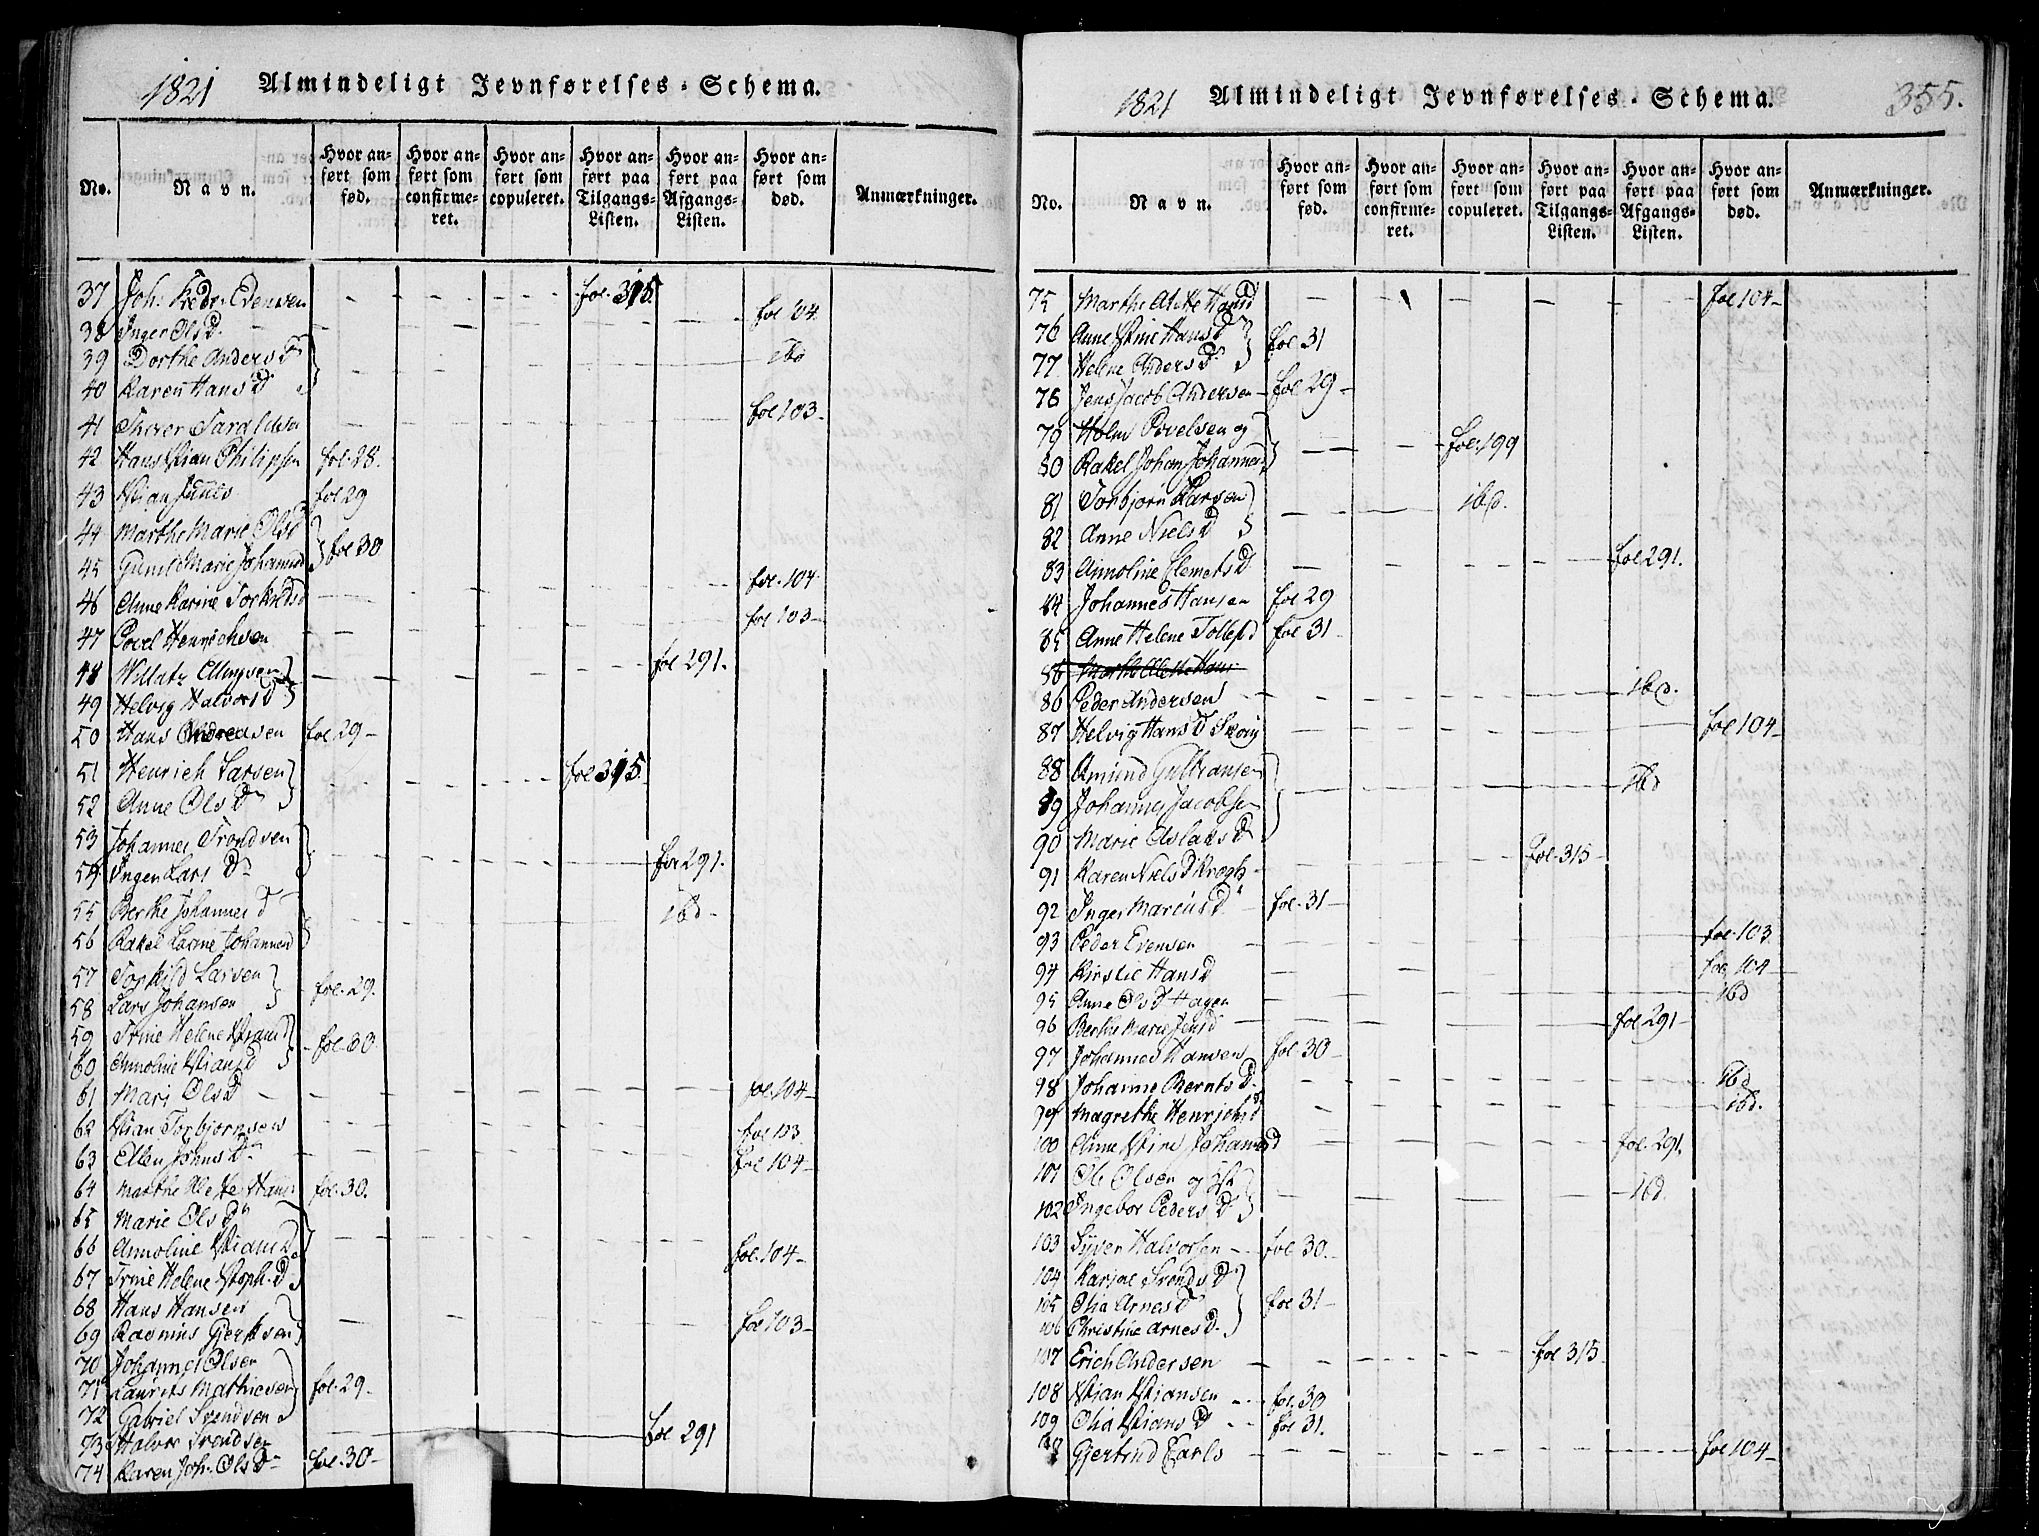 1821 Almindeligt Jevnførelses-Schema.
No. Navn. Hvor anført som fød. Hvor anført som confirmeret. Hvor anført som copuleret. Hvor anført paa Tilgangs-Listen. Hvor anført paa Afgangs-Listen. Hvor anført som død. Anmærkninger.
37 Joh: Fredr: Evensen fol. 315.
38 Inger Ols D. fol 104.
39 Dorthe Anders D
40 Karen Hans D ibd
41 Tharaldsen fol 103
42 Hans Xtian Philipsen fol. 28.
43 Xtian fol 29
44 Marthe Marie Ols d
45 Gunild Marie Johannesd fol 30
46 Anne Karine Torkilds d fol. 104
47 Povel Henrichsen fol 103
48 Ellingsen
49 Helvig Halvors D fol 291.
50 Hans Andreasen fol 29
51 Henrich Larsen
52 Anne Ols D fol 315.
53 Johannes Trondsen
54 Inger Lars D fol 291.
55 Berthe Johannes d
56 Rakel Johannesd ibd
57 Torkild Larsen
58 Lars Johansen fol. 29.
59 Trine Helene Xtians d
60 Annoline Xtians d fol. 30
61 Mari Ols D fol. 104
62 Xtian Torbjornsen fol 103
63 Ellen Johns D fol 104
64 Marthe Alette Hans fol. 30.
65 Marie Ols D
66 Annoline Xtians D
67 Trine Helene Xtoph. D fol. 104
68 Hans Hansen
69 Rasmus Gjertsen fol 103
70 Johannes Olsen
71 Laurits Mathiesen fol. 29
72 Gabriel Svendsen
73 Halvor Trondsen fol 291
74 Karen Joh: Ols D fol. 30
1821 Almindeligt Jevnførelses-Schema. 355.
No. Navn. Hvor anført som fød. Hvor anført som confirmeret. Hvor anført som copuleret. Hvor anført paa Tilgangs-Listen. Hvor anført paa Afgangs-Listen. Hvor anført som død. Anmærkninger.
75 Marthe Alette Hansd fol 104
76 Anne Stine Hans D
77 Helene Anders D fol 31
78 Jens Jacob Andersen fol 29
79 Holm Povelsen og
80 Rakel Johan Johannes fol. 199
81 Torbjorn Larsen
82 Anne Niels D ibd.
83 Annoline Clemets D fol 291.
84 Johannes Hansen fol 29
85 Anne Helene Tollefs d fol 31
86 Marthe Alette Hans
86 Peder Andersen ibd.
87 Helvig Hans D fol 104
88 Amund Gulbransen
89 Johannes Jacobsen ibd
90 Marie Aslaks D
91 Karen Niels D Krogh fol. 315
92 Inger Marcus D fol. 31
93 Peder Evensen fol. 103
94 Kirstie Hans D fol. 104
95 Anne Ols D Hagen ibd
96 Berthe Marie Jens d fol 291
97 Johannes Hansen fol 30
98 Johanne Bernts D. ibd
99 Magrethe Henrichs d ibd.
100 Anne Stine Johannesd fol. 291.
101 Ole Olsen og
102 Ingebor Peders D ibd.
103 Syver Halvorsen fol 30.
104 Karine Tronds D
105 Olia Arnes D fol 31
106 Christine Arnes D
107 Erich Andersen fol 315
108 Xtian Xtiansen fol. 30
109 Olia Xtians D fol 31.
Gjertrud Carls fol 104